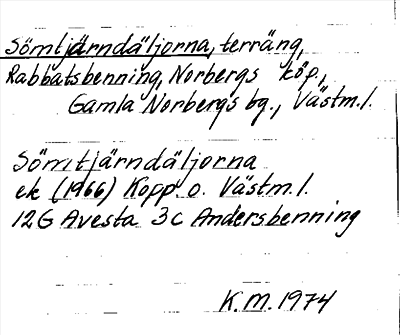 Sömtjärndäljorna, terräng,
Rabbatsbenning, Norbergs köp.,
Gamla Norbergs bg., Västm. l.
Sömtjärndäljorna
ek (1966) Kopp. o. Västm. l.
12G Avesta 3c Andersbenning
K.M. 1974